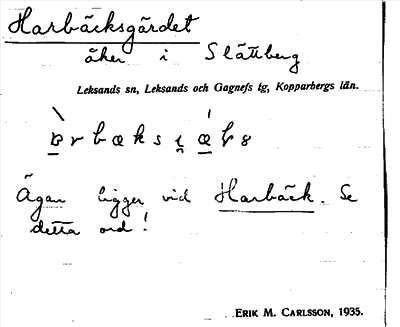 Harbäcksgärdet
åker i Slättberg
Leksands sn, Leksands och Gagnefs tg, Kopparbergs län.
Ägan ligger vid Harbäck. Se
detta ord!
ERIK M. CARLSSON, 1935.